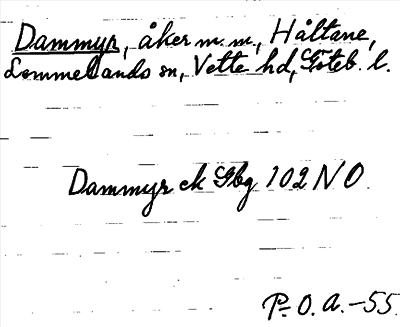 Dammyr, åker m.m., Håltane,
Lommelands sn, Vette hd, Göteb. l.
Dammyr ek Gbg 102 NO
P. O. A. -55.